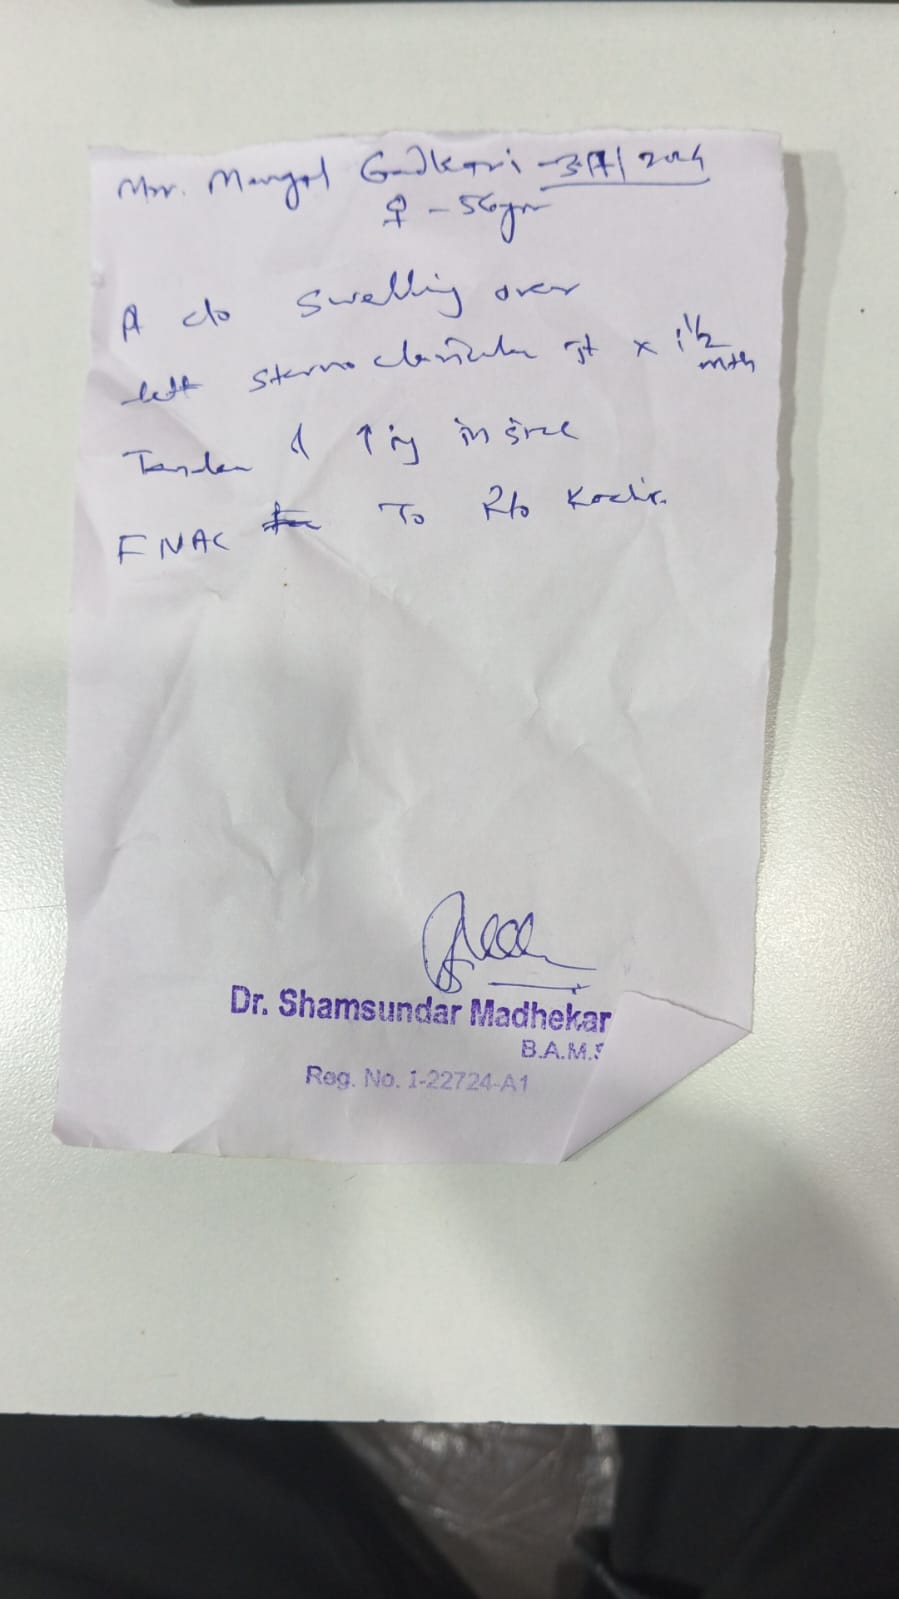 Mrs. Mangal Gadkari - 3/7/2024
♀ - 56yrs
A c/o swelling over
left sternoclavicular jt x 1 1/2 mth
Tender & ↑ing in size
FNAC To R/o Koch's.
Dr. Shamsundar Madhekar
B.A.M.S
Reg. No. I-22724-A1